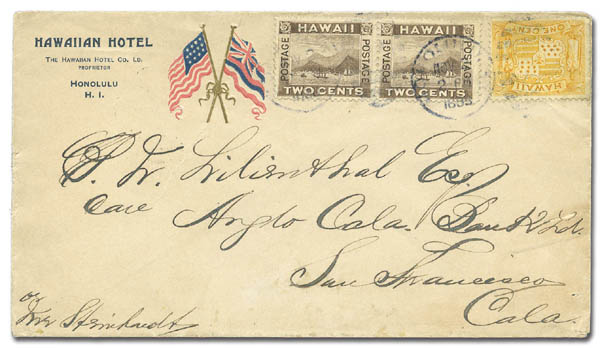 HAWAIIAN HOTEL
THE HAWAIIAN HOTEL CO. LD.
PROPRIETOR
HONOLULU
H. I.
HAWAII
POSTAGE
POSTAGE
TWO CENTS
HAWAII
POSTAGE
POSTAGE
TWO CENTS
HAWAII
ONE CENT
1895
Lilienthal Esq
Care Anglo Cala. Bank Ld.
San Francisco
Cala.
Steinhardt